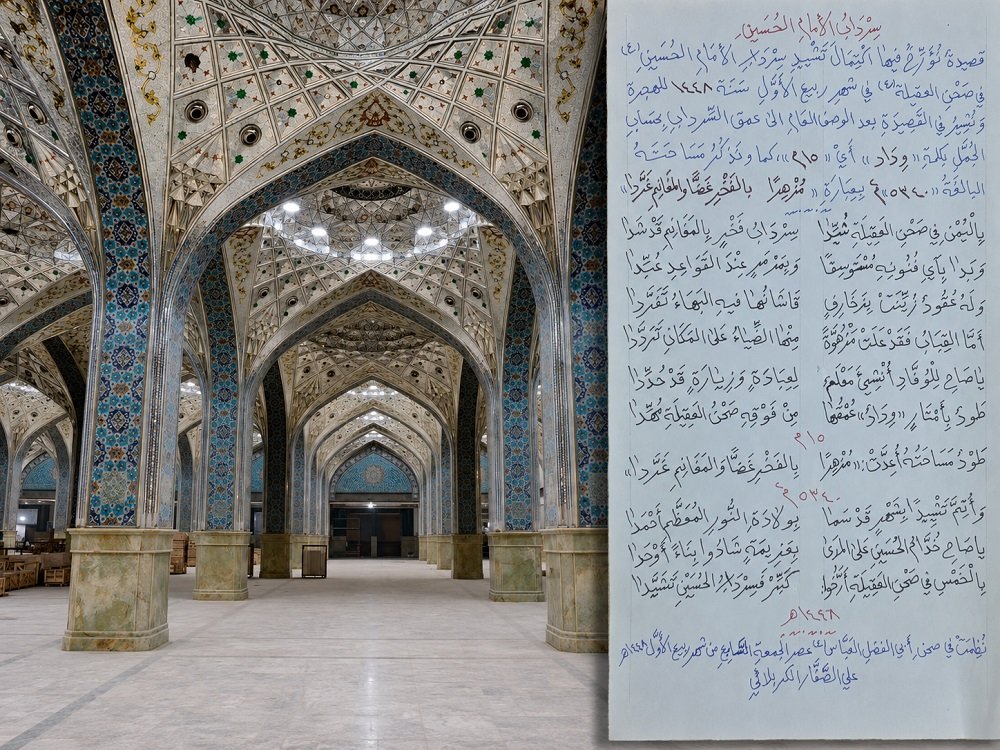 سِرْدَابُ الأمَامِ الحُسَيْنِ
قصيدةٌ نُؤَرِّخُ فيها اكْتِمَالَ تَشْيِيدِ سِرْدَابِ الأمَامِ الحُسَيْنِ (ع)
في صَحْنِ العقيلةِ (ع) في شهرِ ربيع الأوَّلِ سَنَةَ ١٤٤٨ للهجرةِ
وَنُشِيرُ في القَصِيدَةِ بعدَ الوصفِ العَامِ الى عمقِ السِّردابِ بحِسَابِ
الجُمَّلِ بكلمةِ «وِدَاد» أيْ «١٥م»، كما ونَذكُرُ مَسَاحَتَهُ
البالغَةَ «٥٣٤٠»م بِعِبَارَةِ «مُزْهِرًا بالفَخْرِ غَضًّا والمَغَانِمِ غَرَّدَا»
بِاليُمْنِ في صَحْنِ العَقِيلَةِ شُيِّدَا سِرْدَابُ فَخْرٍ بِالمَغَانِمِ قَدْ شَدَا
وَبَدَا بِآيِ فُنُونِهِ مُسْتَوسِقًا وَبِمَرْمَرٍ عِنْدَ القَوَاعِدِ عُبِّدَا
وَلَهُ عُقُودٌ زُيِّنَتْ بِزَخَارِفٍ قَاشَانُهَا فيهِ البَهَاءُ تَفَرَّدَا
أمَّا القِبَابُ فَقَدْ عَلَتْ مَزْهُوَّةً مِنْهَا الضِّيَاءُ عَلَى المَكَانِ تَرَدَّدَا
يا صَاحِ لِلْوُفَّادِ أُنْشِئَ مَعْلَمٌ لِعِبَادَةٍ وَزِيَارَةٍ قَدْ حُدِّدَا
طَودٌ بِأَمْتَارٍ «وِدَادٌ» عُمْقُهَا مِنْ فَوْقِهِ صَحْنُ العَقِيلَةِ مُهِّدَا
١٥م
طَوْدٌ مَسَاحَتُهُ أُعِدَّتْ: «مُزْهِرًا بالفَخْرِ غَضًّا والمَغَانِمِ غَرَّدَا»
٥٣٤٠م
وَأُتِمَّ تَشْيِيدًا بِشَهْرٍ قَدْ سَمَا بِولَادَةِ النُّورِ المُعَظَّمِ أَحْمَدَا
يا صَاحِ خُدَّامُ الحُسَيْنِ عَلَى المَدَى بِعَزِيمَةٍ شَادُوا بِنَاءً أَوْحَدَا
بِالْخَمْسِ في صَحْنِ العَقِيلَةِ أَرِّخُوا: كَبِّرْ فَسِرْدَابُ الحُسَيْنِ تَشَيَّدَا
١٤٤٨هـ
نُظِمَتْ في صحنِ أبي الفضلِ العَبَّاسِ (ع) عصرَ الجمعةِ السَّابعِ من شهرِ ربيع الأوَّلِ ١٤٤٨هـ
علي الصَّفَّار الكربلائي